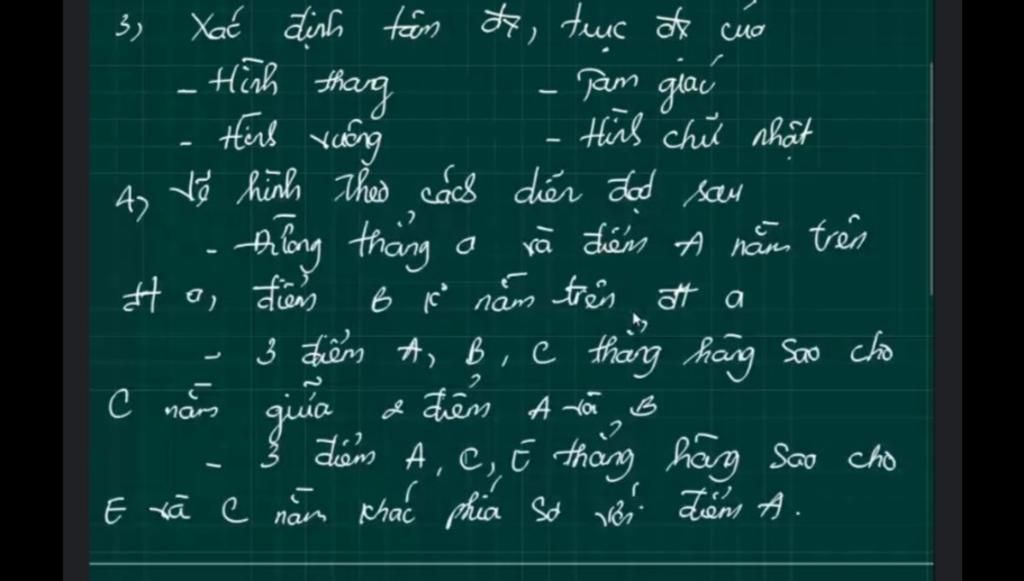 3) Xác định tâm đx, trục đx của
- Hình thang - Tam giác
- Hình vuông - Hình chữ nhật
4) Vẽ hình theo cách diễn đạt sau
- Đường thẳng a và điểm A nằm trên
đt a, điểm B k nằm trên đt a
- 3 điểm A, B, C thẳng hàng sao cho
C nằm giữa 2 điểm A và B
- 3 điểm A, C, E thẳng hàng sao cho
E và C nằm khác phía so với điểm A.